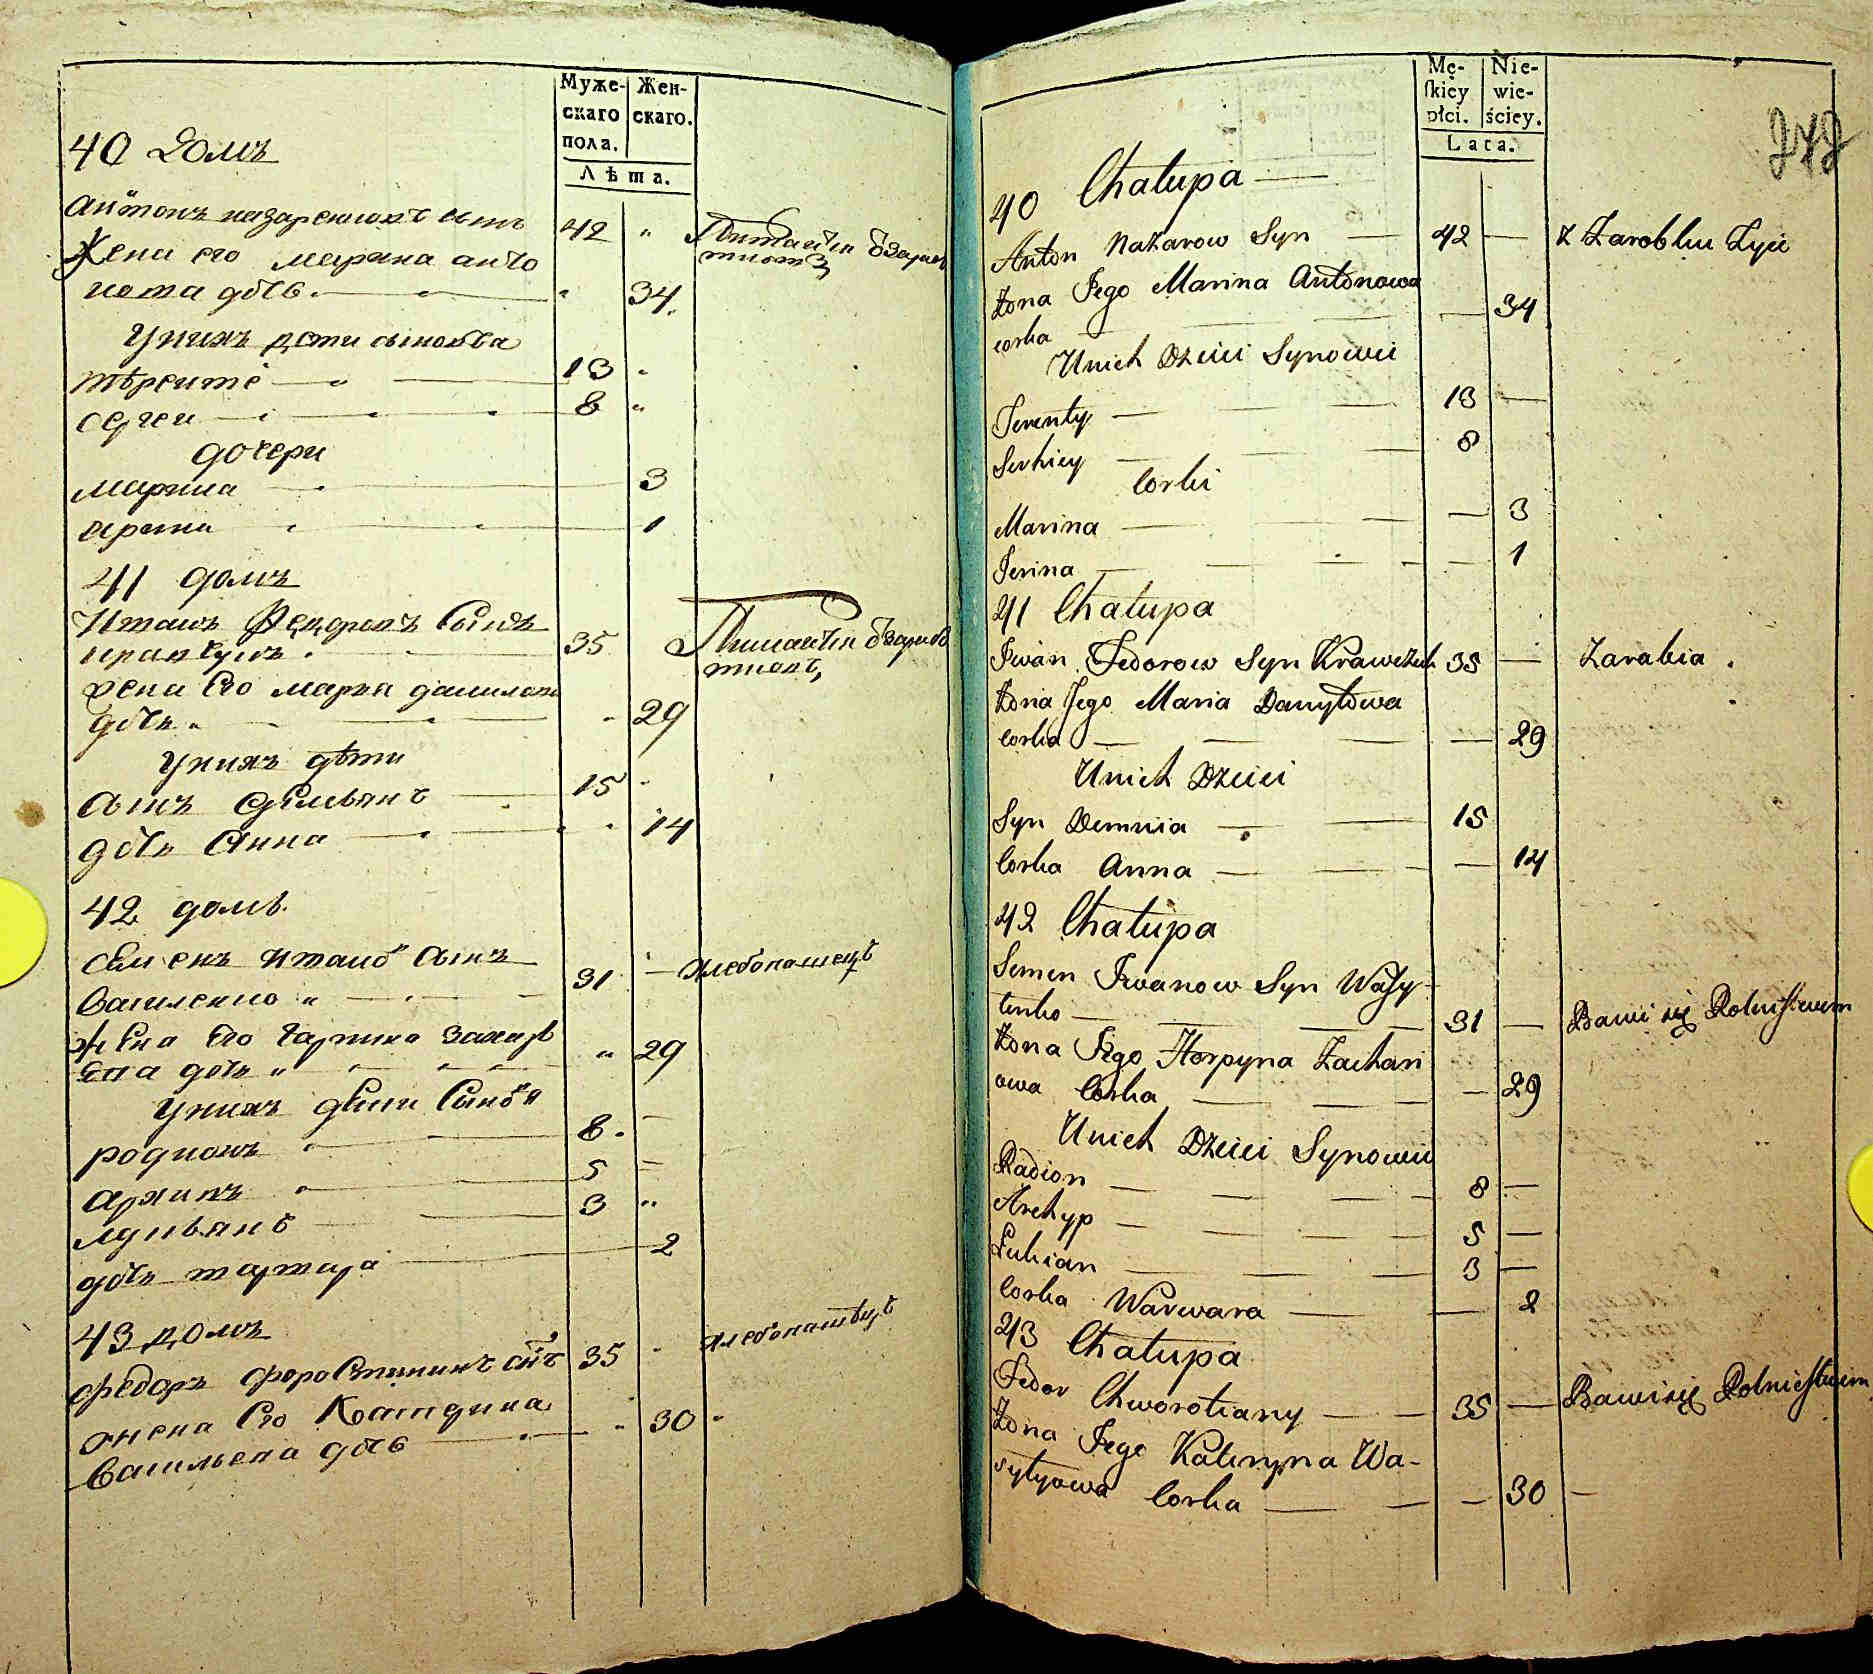 Муже-
скаго
пола.
Жен-
скаго.
Лѣта.
40 Домъ
Антонъ назаренковъ сынъ 42 "
Жена его марина анто
нова дочь 34
Унихъ дети сыновья
тѣренте 13
сергеи 8 "
дочери
марина 3
ирина 1
41 домъ
Иванъ Федоровъ Сынъ
кравчукъ 35
жена Его мария данилова
дочь 29
Унихъ дѣти
сынъ демьянъ 15
дочь Анна 14
42 домъ
семенъ ивановъ сынъ
василенко " 31 хлебопашецъ
жена Его гарпина захарь
ева дочь " " 29
Унихъ дѣти Сыновья
родионъ 8
архипъ 5
лукьянъ 3 "
дочь варвара 2
43 домъ
федоръ 35 хлебопашецъ
жена Его Катерина
Васильева дочь 30
Mę-
skiey
płci.
Nie-
wie-
ściey.
Lata.
40 Chałupa
Anton Nazarow Syn 42 — z Zarobku Żyie
Żona Jego Marina Antonowa
corka — 34
Unich Dzieci Synowie
Terenty 13 —
Serhiey 8
Corki
Marina — 3
Jerina — 1
41 Chałupa
Jwan Fedorow Syn Krawczuk 35 — Zarabia.
Żona Jego Maria Danyłowa
corka — 29
Unich Dzieci
Syn Demnia 15
Corka Anna — 14
42 Chałupa
Semen Jwanow Syn Wasy
lenko 31 — Bawi się Rolnictwem
Żona Jego Horpyna Zachari
owa Corka — 29
Unich Dzieci Synowie
Radion 8 —
Archyp 5 —
Łukian 3 —
Corka Warwara — 2
43 Chałupa
Fedor Chworostiany 35 — Bawi się Rolnictwem
Żona Jego Kateryna Wa-
sylyowa Corka — 30 —